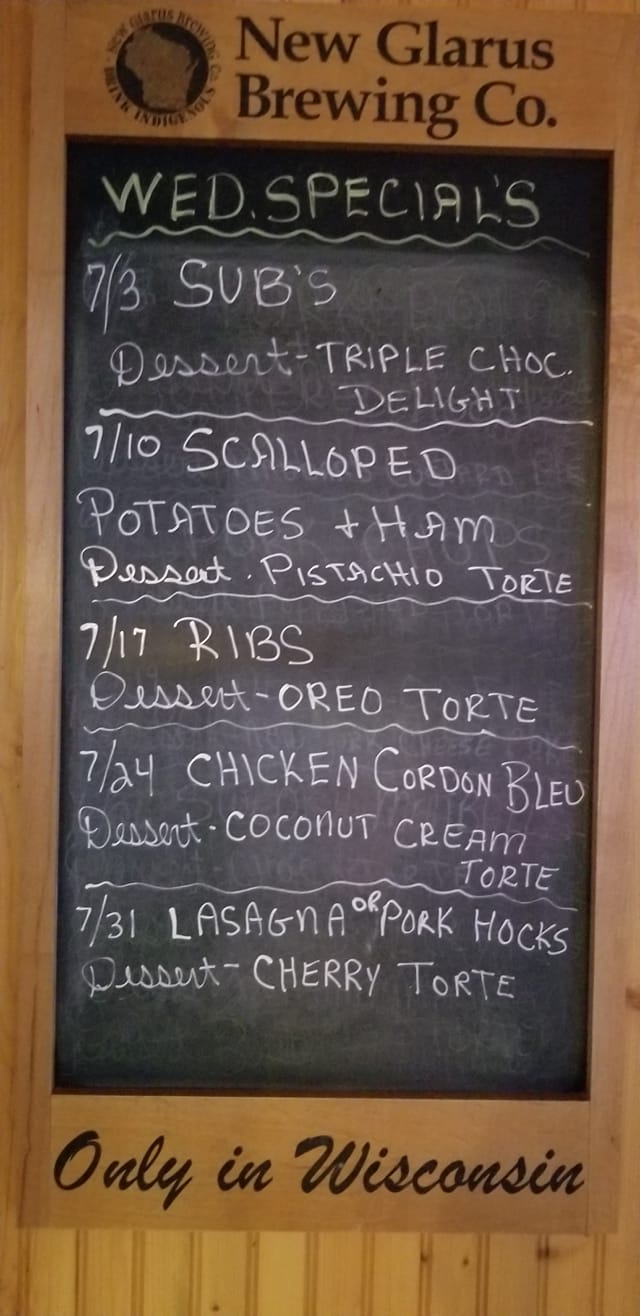 NEW GLARUS BREWING CO.
DRINK INDIGENOUS
New Glarus
Brewing Co.
WED. SPECIAL'S
7/3 SUB'S
Dessert - TRIPLE CHOC.
DELIGHT
7/10 SCALLOPED
POTATOES + HAM
Dessert. PISTACHIO TORTE
7/17 RIBS
Dessert - OREO TORTE
7/24 CHICKEN CORDON BLEU
Dessert - COCONUT CREAM
TORTE
7/31 LASAGNA OR PORK HOCKS
Dessert - CHERRY TORTE
Only in Wisconsin